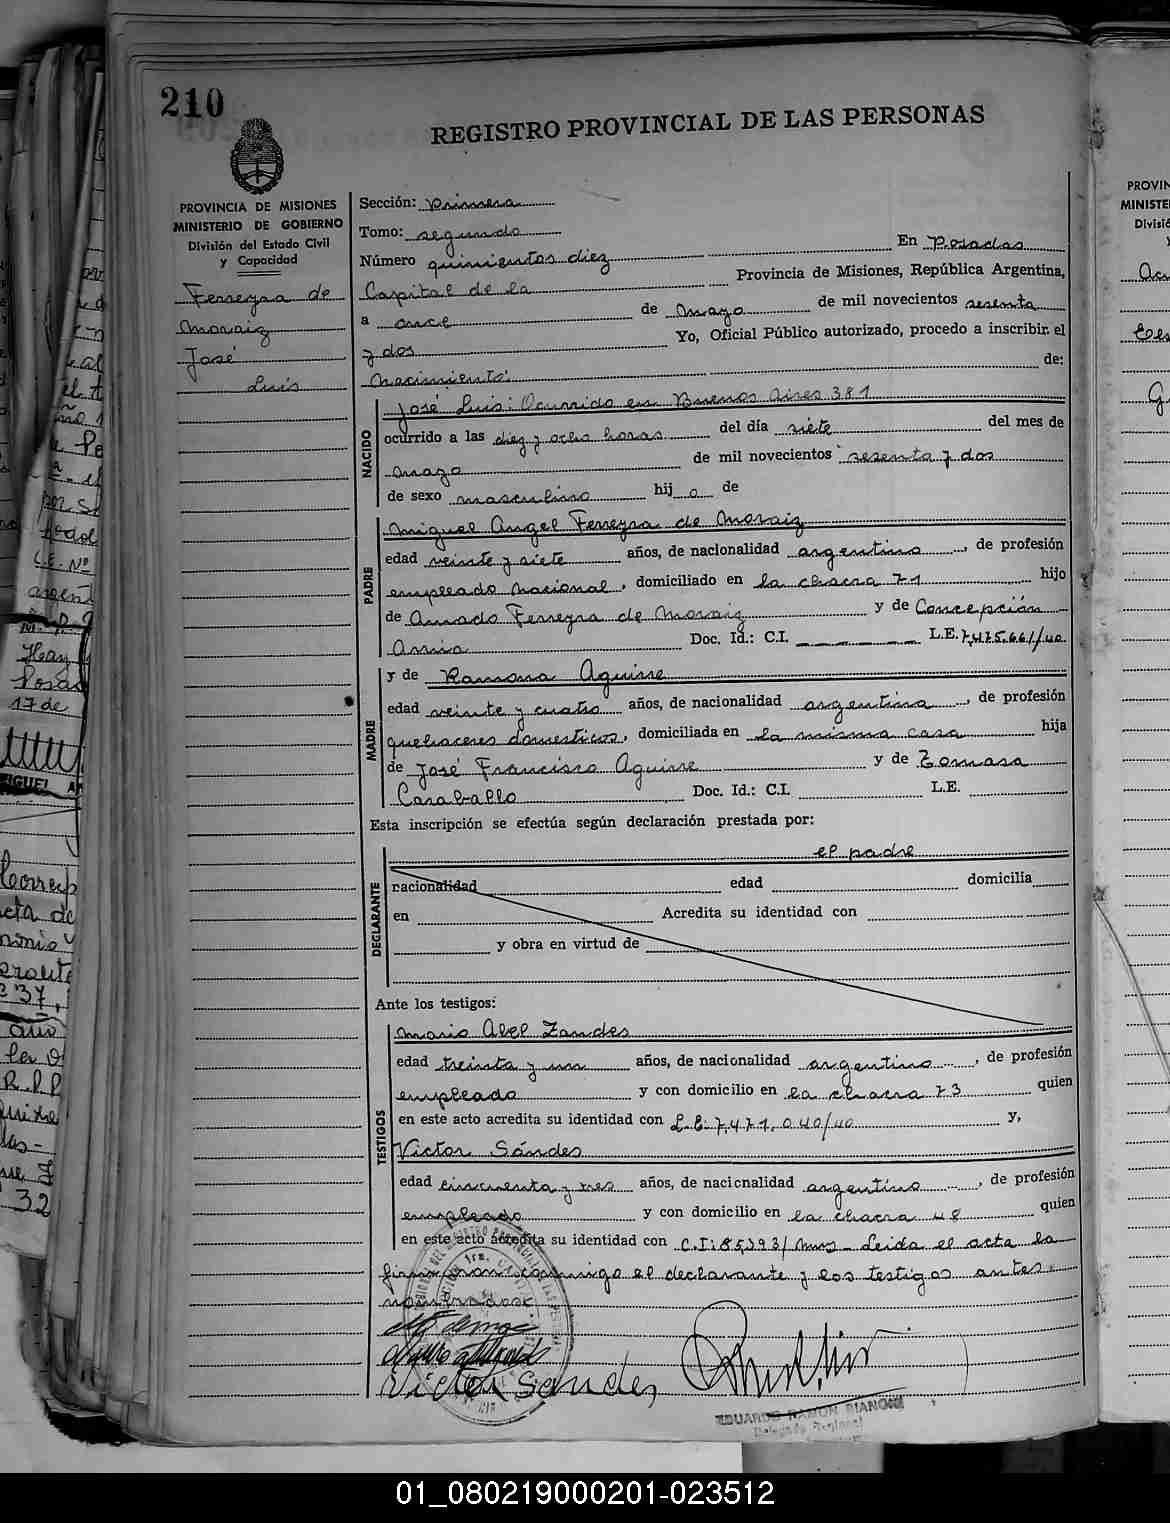 210
REGISTRO PROVINCIAL DE LAS PERSONAS
PROVINCIA DE MISIONES
MINISTERIO DE GOBIERNO
División del Estado Civil
y Capacidad
Ferreyra de
Moraiz
José
Luis
Sección: Primera
Tomo: segundo
Número quinientos diez En Posadas
Capital de la Provincia de Misiones, República Argentina,
a once de mayo de mil novecientos sesenta
y dos Yo, Oficial Público autorizado, procedo a inscribir el
nacimiento de:
NACIDO
José Luis: Ocurrido en Buenos Aires 381
ocurrido a las diez y ocho horas del día siete del mes de
mayo de mil novecientos sesenta y dos
de sexo masculino hij o de
PADRE
Miguel Angel Ferreyra de Moraiz
edad veinte y siete años, de nacionalidad argentino, de profesión
empleado nacional, domiciliado en la chacra 71 hijo
de Amado Ferreyra de Moraiz y de Concepción
Doc. Id.: C.I. L.E. 7.475.661/40
MADRE
y de Ramona Aguirre
edad veinte y cuatro años, de nacionalidad argentina, de profesión
quehaceres domesticos, domiciliada en la misma casa hija
de José Francisco Aguirre y de Tomasa
Caraballo Doc. Id.: C.I. L.E.
Esta inscripción se efectúa según declaración prestada por:
DECLARANTE
el padre
nacionalidad edad domicilia
en Acredita su identidad con
y obra en virtud de
Ante los testigos:
TESTIGOS
Mario Abel Zandes
edad treinta y un años, de nacionalidad argentino, de profesión
empleado y con domicilio en la chacra 73 quien
en este acto acredita su identidad con L.E. 7.471.040/40 y,
Victor Sándes
edad cincuenta y tres años, de nacionalidad argentino, de profesión
empleado y con domicilio en la chacra 48 quien
en este acto acredita su identidad con C.I: 85393/Mns_ Leida el acta la
firmaron conmigo el declarante y los testigos antes
nombrados:
Victor Sandes
EDUARDO RAMON BIANCHI
01_080219000201-023512